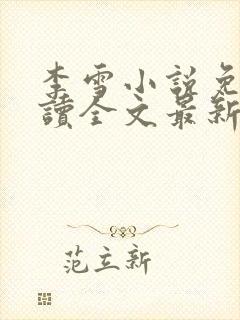 李雪小說免
讀全文最新
范立新